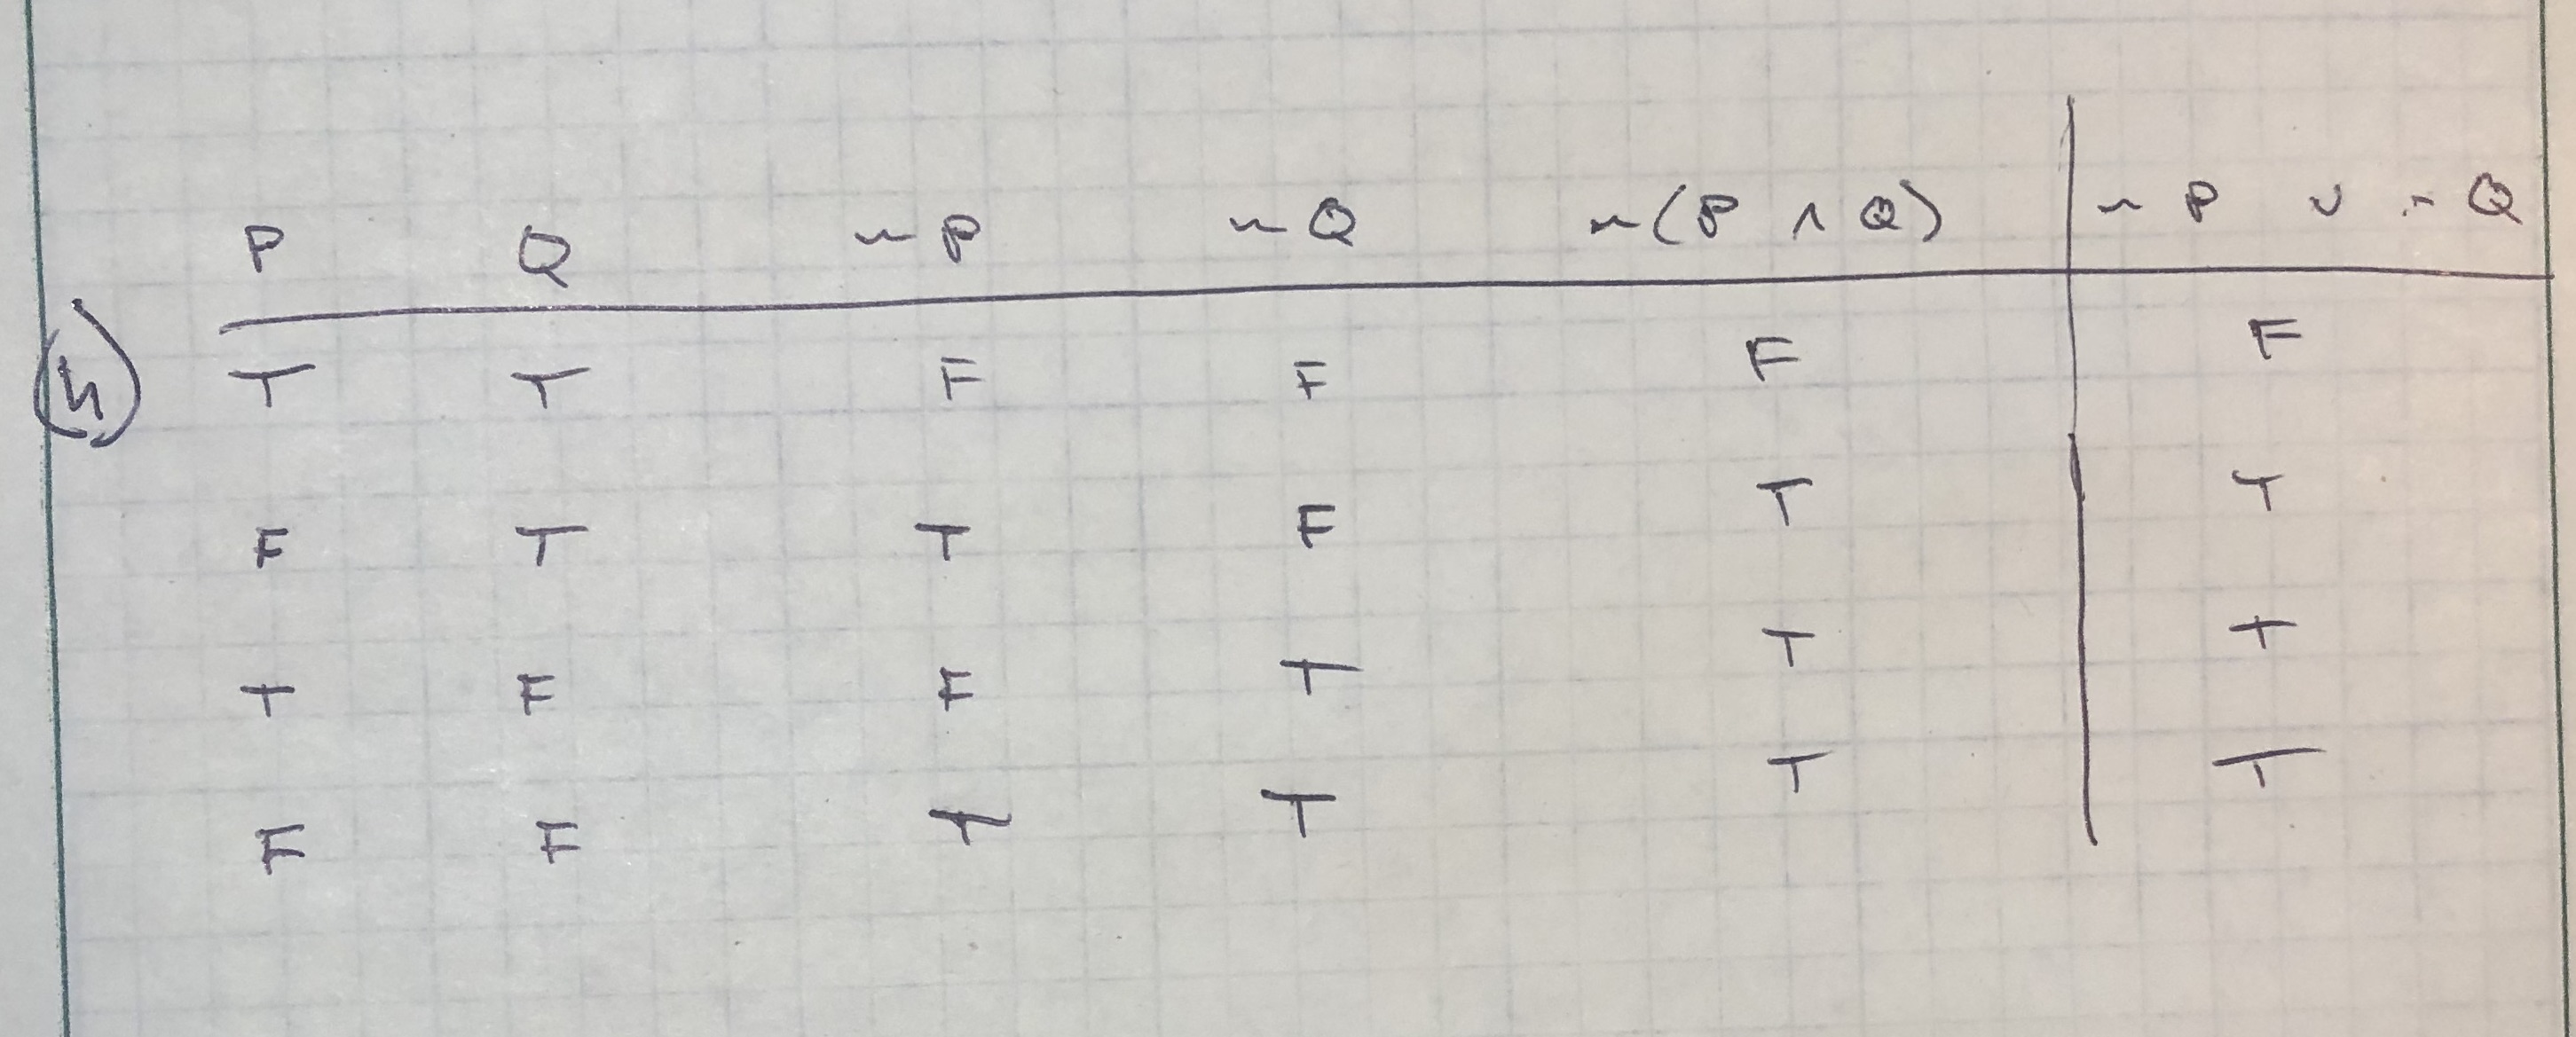 P Q ~P ~Q ~(P ∧ Q) ~P ∨ ~Q
T T F F F F
F T T F T T
T F F T T T
F F T T T T